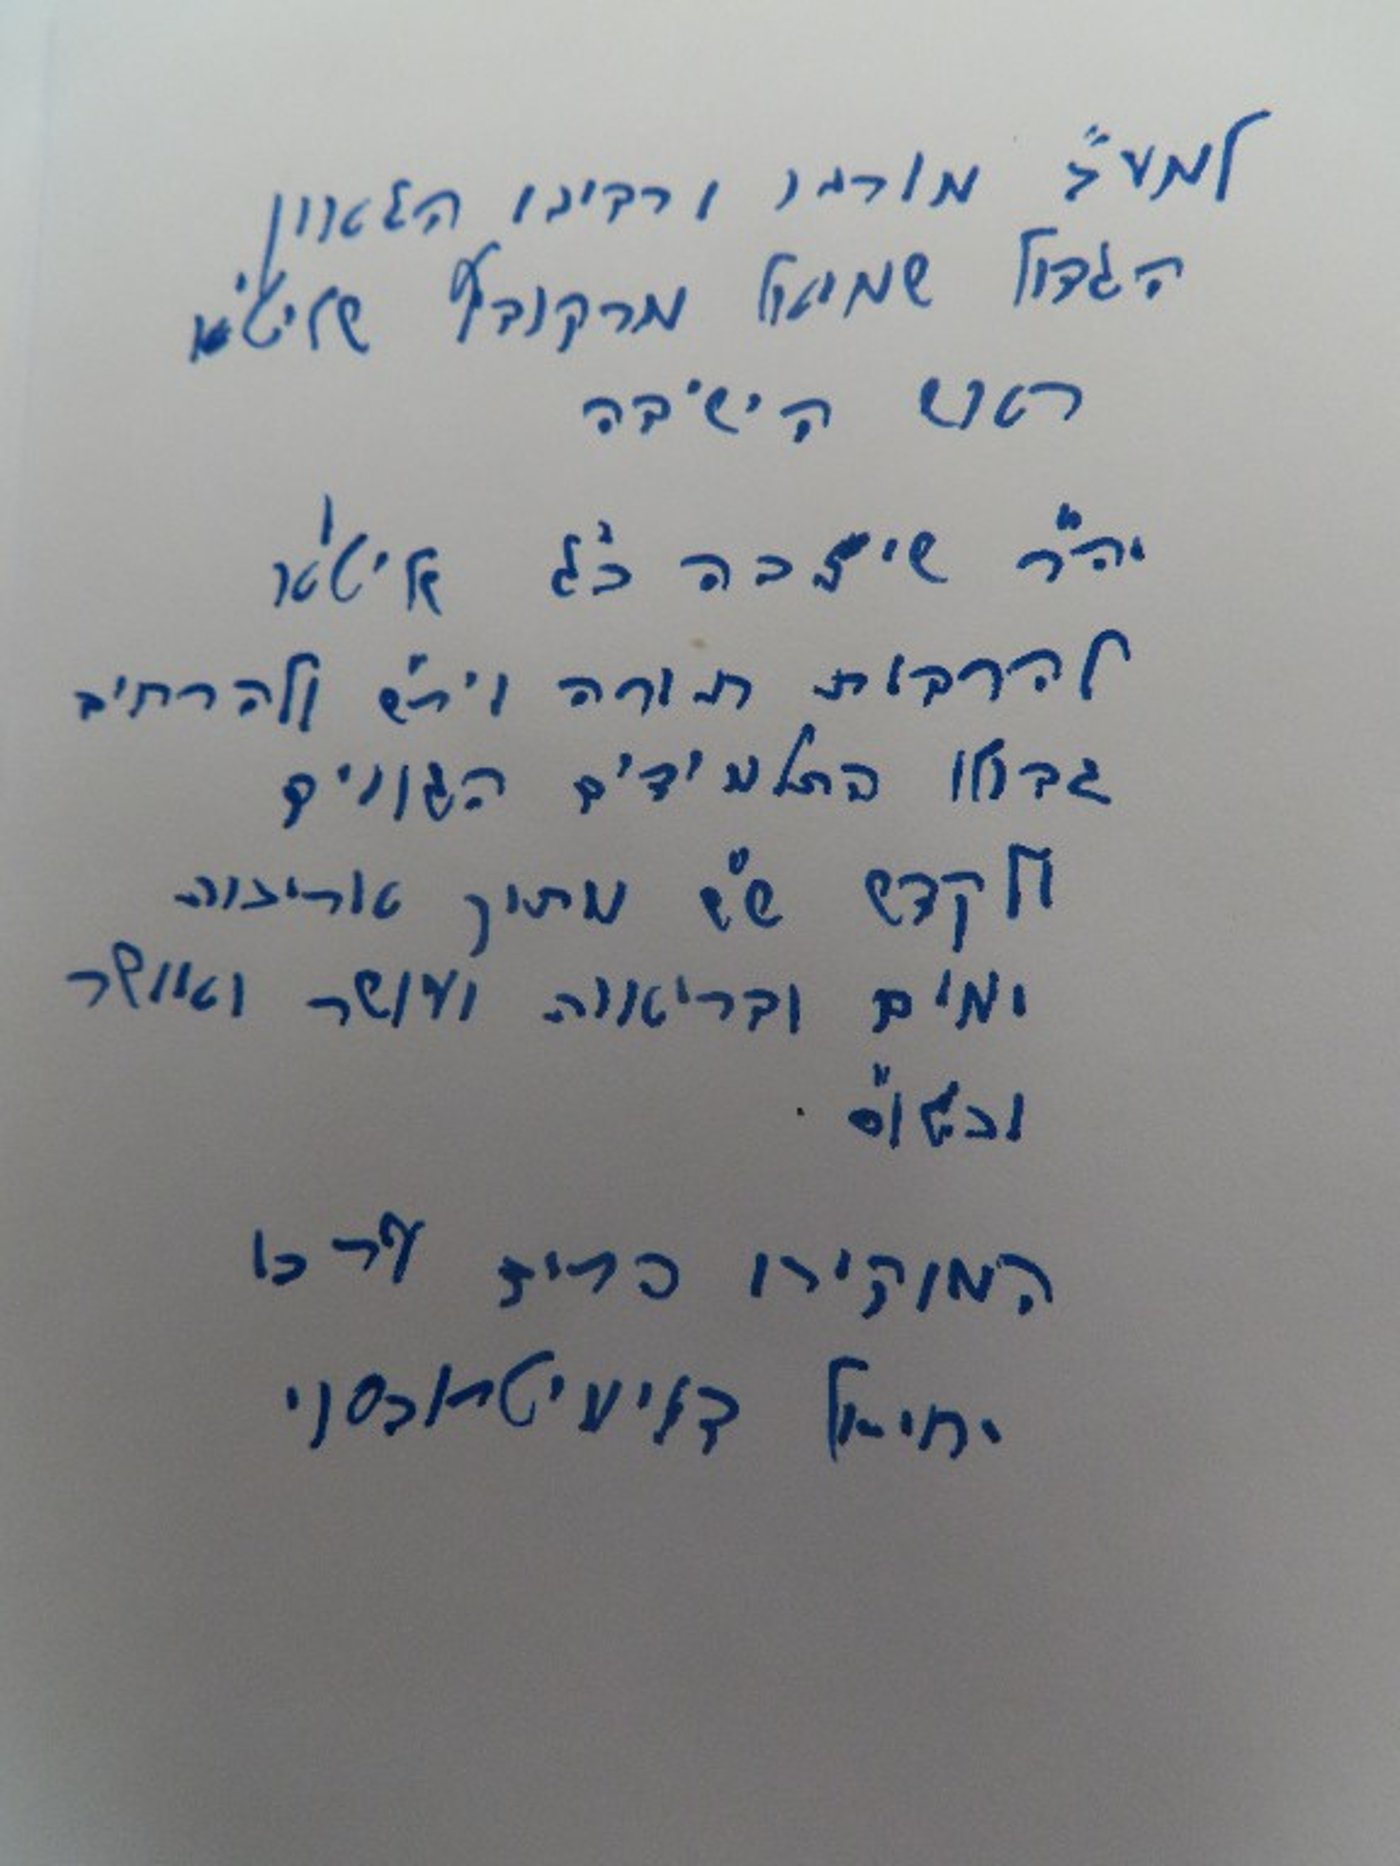 למע"כ מורנו ורבינו הגאון
הגדול שמואל מרקוביץ שליט"א
ראש הישיבה
יה"ר שיזכה כ"ג שליט"א
להרבות תורה ויר"ש ולהרחיב
גבולו התלמידים הגונים
ולקדש ש"ש מתוך אריכות
ימים ובריאות ועושר ואושר
וכט"ס
המוקירו כרום ערכו
יחיאל